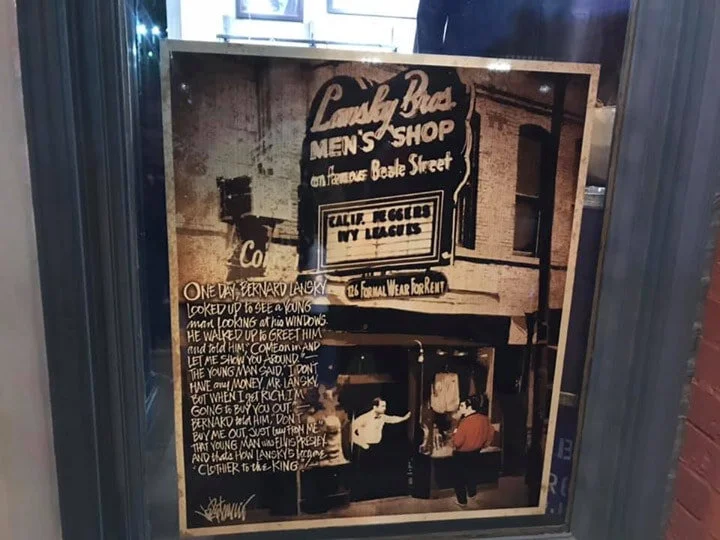 Lansky Bros.
MEN'S SHOP
on famous Beale Street
CALIF. PEGGERS
IVY LEAGUES
126 FORMAL WEAR FOR RENT
ONE DAY, BERNARD LANSKY
LOOKED UP to SEE a YOUNG
man LOOKING at his WINDOWS.
HE WALKED UP to GREET HIM
and told HIM "COME on in AND
LET ME SHOW YOU AROUND."
THE YOUNG MAN SAID, "I DON'T
HAVE any MONEY, MR. LANSKY,
BUT WHEN I get RICH, I'M
GOING to BUY YOU OUT."
BERNARD told HIM, "DON'T
BUY ME OUT, JUST buy FROM ME."
THAT YOUNG MAN was ELVIS PRESLEY
AND that's HOW LANSKY'S became
"CLOTHIER to the KING"